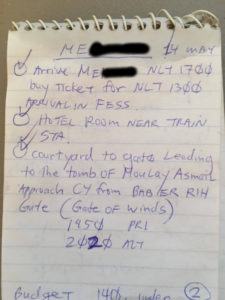 ME 14 MAY
Arrive ME NLT 1700
buy Ticket for NLT 1300
ARRIVAL IN FESS.
HOTEL ROOM NEAR TRAIN
STA.
COURTYARD to gate Leading
to the tomb of Moulay Asmail
Approach CY from BAB/ER RIH
Gate (Gate of Winds)
1950 PRI
2020 ALT
Budget 140
2